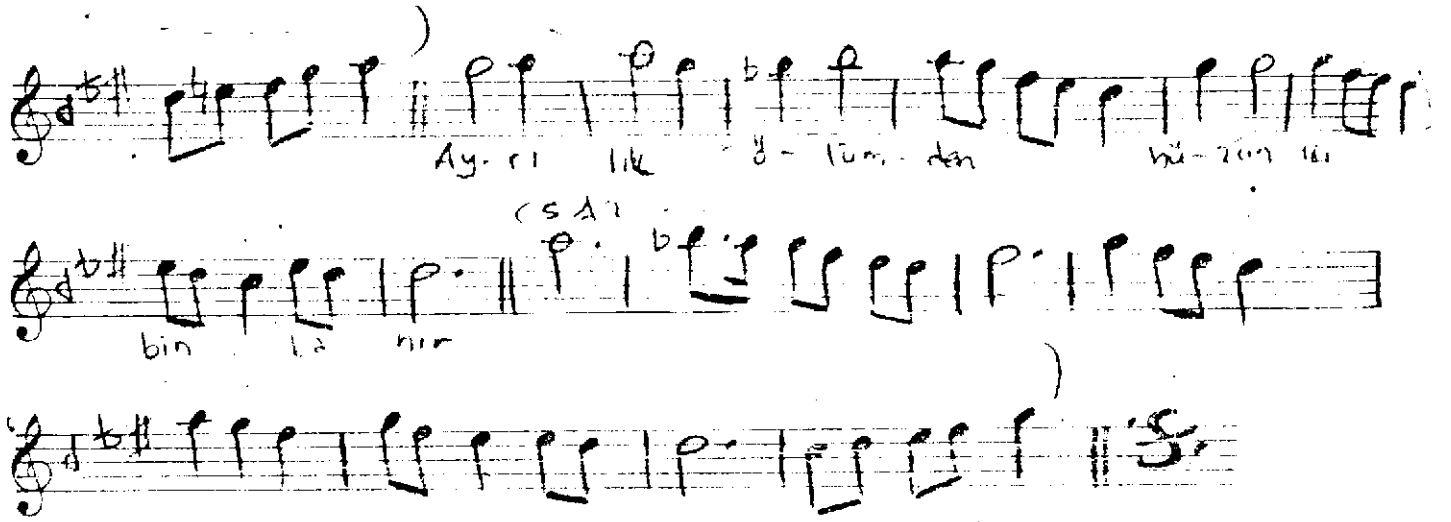 Ay-rı lık ö-lüm-den hü-zün lü
(SAZ
bin la nır